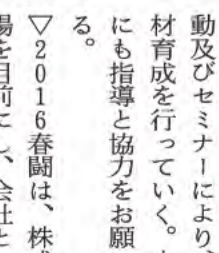 動及びセミナーにより、
材育成を行っていく。
にも指導と協力をお願
る。
▽2016春闘は、株
場を目前にし、会社と